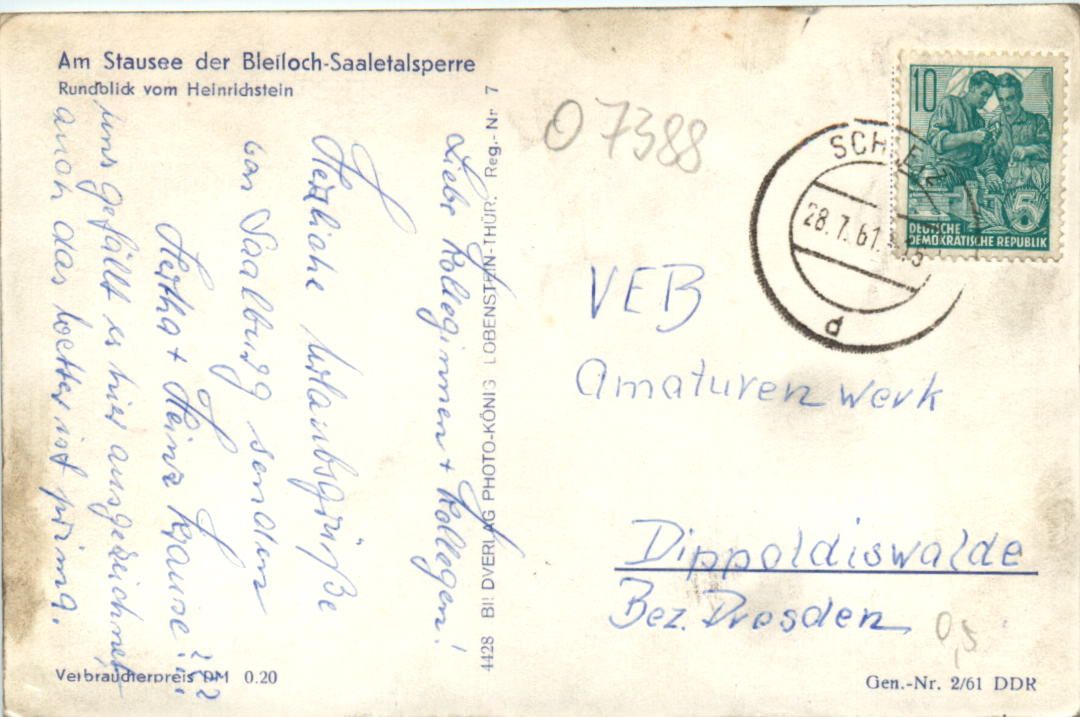 Am Stausee der Bleiloch-Saaletalsperre
Rundblick vom Heinrichstein
Liebe Kolleginnen + Kollegen!
Herzliche Urlaubsgrüße
von Saalburg senden
Hertha + Heinz Krause
uns gefällt es hier ausgezeichnet,
auch das Wetter ist prima.
Verbraucherpreis DM 0.20
4428 BILDVERLAG PHOTO-KÖNIG LOBENSTEIN-THÜR. Reg.-Nr 7
07388
SCHLEIZ
28.7.61
d
10
5
DEUTSCHE
DEMOKRATISCHE REPUBLIK
VEB
Amaturenwerk
Dippoldiswalde
Bez. Dresden
0,5
Gen.-Nr. 2/61 DDR